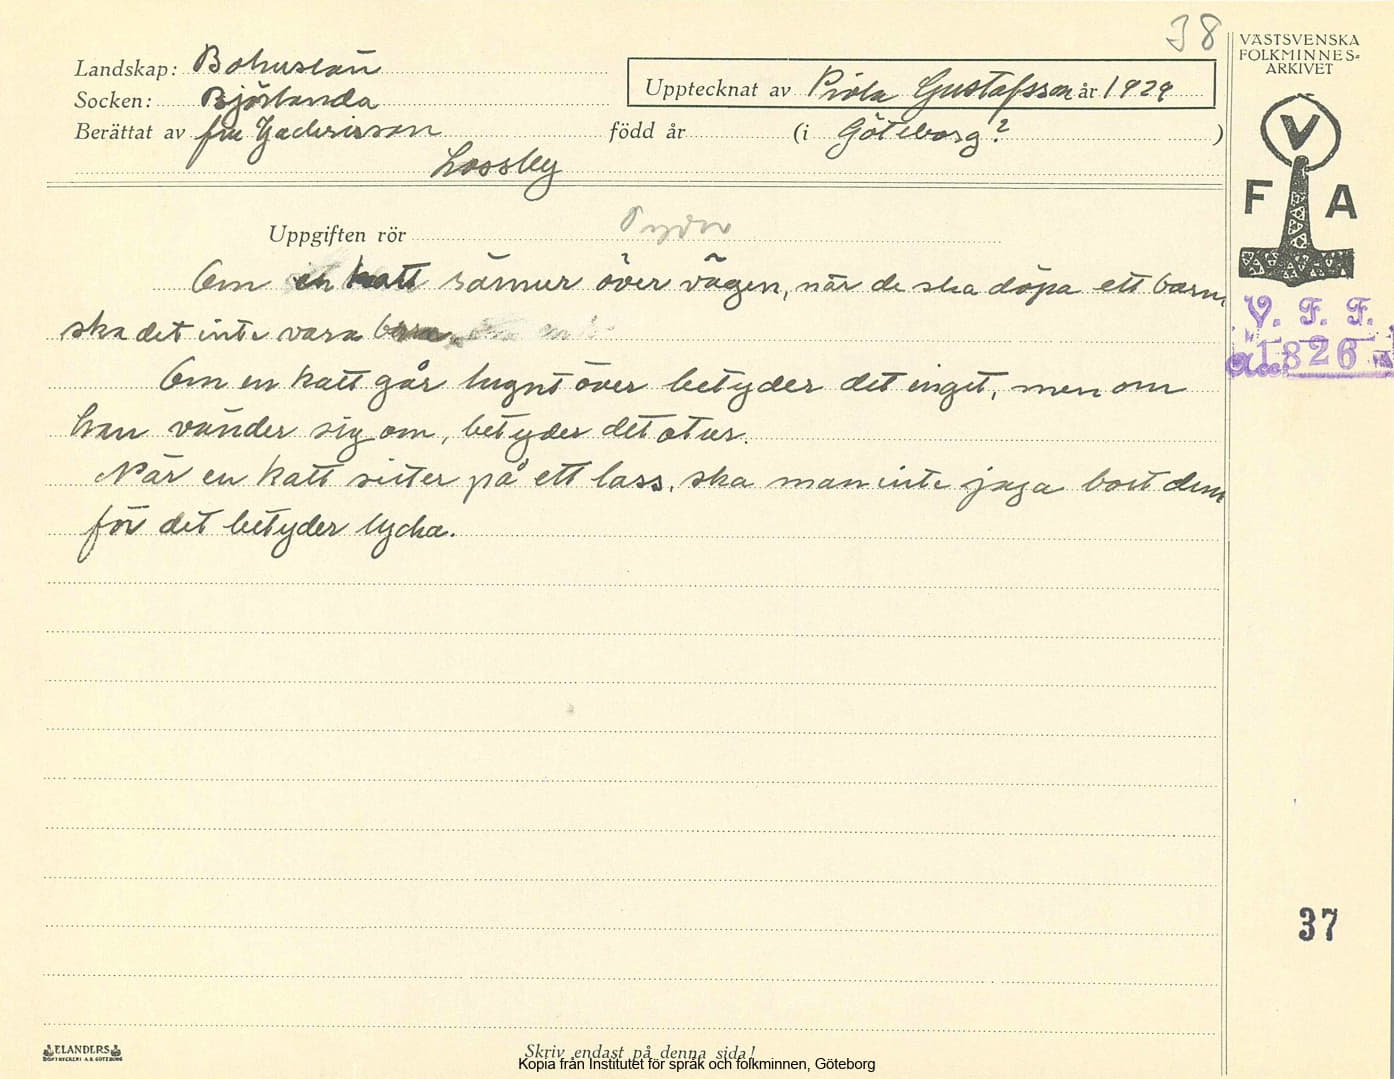 38
VÄSTSVENSKA
FOLKMINNES-
ARKIVET
Landskap: Bohuslän
Socken: Björlanda
Upptecknat av Viola Gustafsson år 1929
Berättat av fru Zachrisson född år (i Göteborg? )
Lossby
V
F A
Uppgiften rör Tydor
Om en katt särmur över vägen, när de ska döpa ett barn
ska det inte vara bra
V. F. F.
Acc. 1826
Om en katt går lugnt över betyder det inget, men om
han vänder sig om, betyder det otur.
När en katt sitter på ett lass, ska man inte jaga bort dem
för det betyder lycka.
37
ELANDERS
BOKTRYCKERI A.B. GÖTEBORG
Skriv endast på denna sida!
Kopia från Institutet för språk och folkminnen, Göteborg